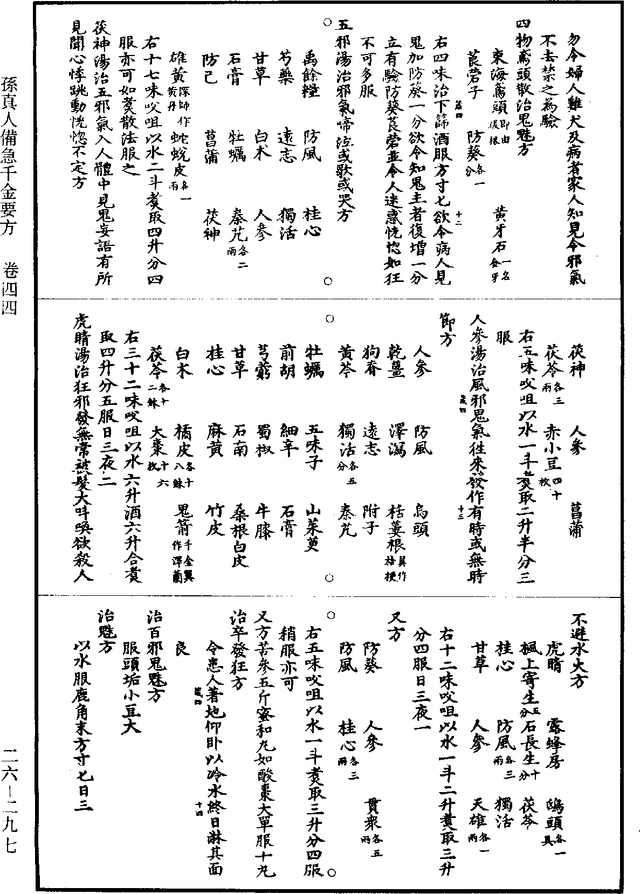 孫真人備急千金要方　卷四四
二六—二九七
勿令婦人雞犬及病者家人知見令邪氣
不去禁之為驗
四物鳶頭散治鬼魅方
東海鳶頭即由跋根　黃牙石一名金牙
莨菪子　防葵各一分
右四味治下篩酒服方寸匕欲令病人見
鬼加防葵一分欲令知鬼主者復增一分
立有驗防葵莨菪並令人迷惑恍惚如狂
不可多服
五邪湯治邪氣啼泣或歌或哭方
禹餘糧　防風　桂心
芍藥　遠志　獨活
甘草　白朮　人參
石膏　牡蠣　秦艽各二兩
防己　菖蒲　茯神
雄黃深師作黃丹　蛇蛻皮各一兩
右十七味㕮咀以水二斗煮取四升分四
服亦可如煮散法服之
茯神湯治五邪氣入人體中見鬼妄語有所
見聞心悸跳動恍惚不定方
茯神　人參　菖蒲
茯苓各三兩　赤小豆四十枚
右五味㕮咀以水一斗煮取二升半分三
服
人參湯治風邪鬼氣往來發作有時或無時
節方
人參　防風　烏頭
乾薑　澤瀉　栝蔞根翼作桔梗
狗脊　遠志　附子
黃芩　獨活各五分　秦艽
牡蠣　五味子　山茱萸
前胡　細辛　石膏
芎藭　蜀椒　牛膝
甘草　石南　桑根白皮
桂心　麻黃　竹皮
白朮　橘皮各十八銖　鬼箭千金翼作澤蘭
茯苓各十二銖　大棗十六枚
右三十二味㕮咀以水六升酒六升合煮
取四升分五服日三夜二
虎睛湯治狂邪發無常被髮大叫喚欲殺人
不避水火方
虎睛　露蜂房　鴟頭各一具
楓上寄生五分　石長生十分　茯苓
桂心　防風各三兩　獨活
甘草　人參　天雄各一兩
右十二味㕮咀以水一斗二升煮取三升
分四服日三夜一
又方
防葵　人參　貫衆各五兩
防風　桂心各三兩
右五味㕮咀以水一斗煮取三升分四服
稍服亦可
又方苦參五斤蜜和丸如酸棗大單服十丸
治卒發狂方
令患人著地仰臥以冷水終日淋其面
良
治百邪鬼魅方
服頭垢小豆大
治魅方
以水服鹿角末方寸匕日三